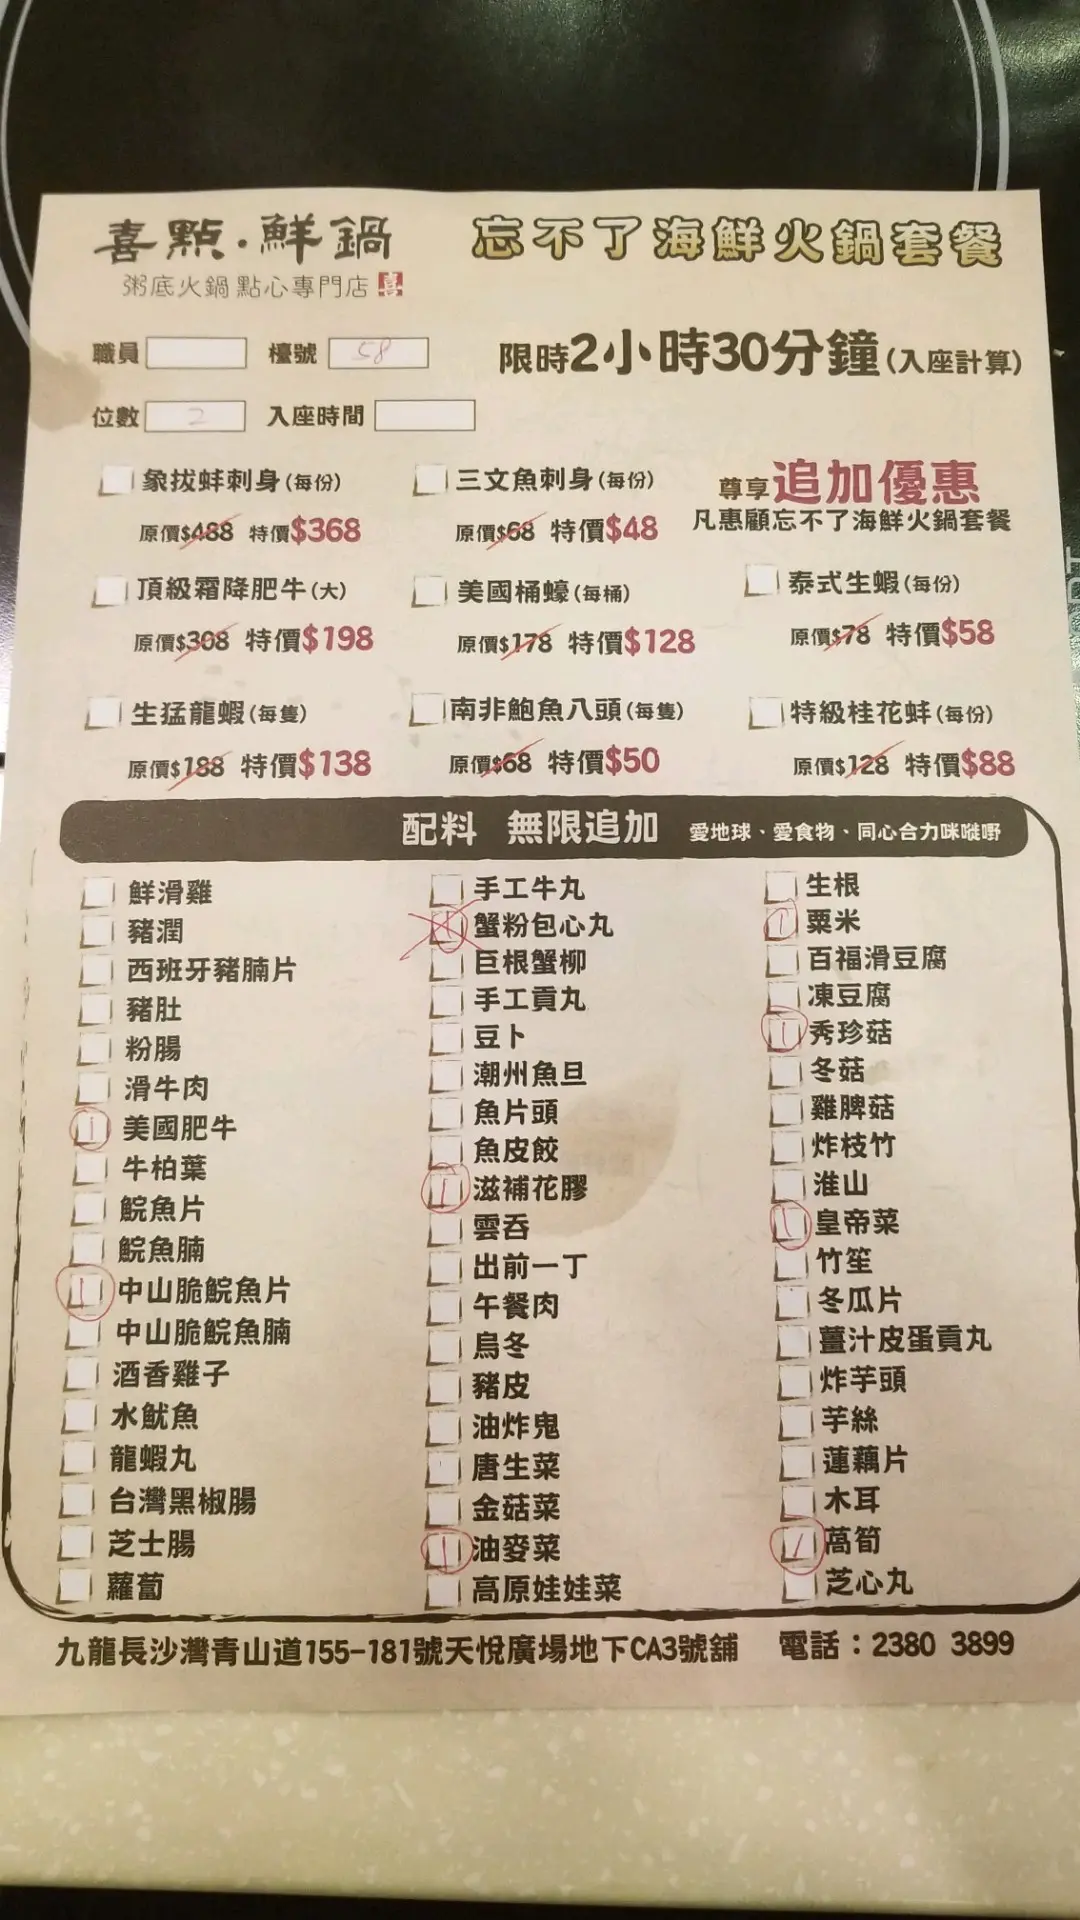 喜點·鮮鍋
忘不了海鮮火鍋套餐
粥底火鍋點心專門店 喜
職員 檯號 58
限時2小時30分鐘(入座計算)
位數 2 入座時間
象拔蚌刺身(每份)
原價$488 特價$368
三文魚刺身(每份)
原價$68 特價$48
尊享追加優惠
凡惠顧忘不了海鮮火鍋套餐
頂級霜降肥牛(大)
原價$308 特價$198
美國桶蠔(每桶)
原價$178 特價$128
泰式生蝦(每份)
原價$78 特價$58
生猛龍蝦(每隻)
原價$188 特價$138
南非鮑魚八頭(每隻)
原價$68 特價$50
特級桂花蚌(每份)
原價$128 特價$88
配料 無限追加 愛地球、愛食物、同心合力咪嘥嘢
鮮滑雞
豬潤
西班牙豬腩片
豬肚
粉腸
滑牛肉
1 美國肥牛
牛柏葉
鯇魚片
鯇魚腩
1 中山脆鯇魚片
中山脆鯇魚腩
酒香雞子
水魷魚
龍蝦丸
台灣黑椒腸
芝士腸
蘿蔔
手工牛丸
1 蟹粉包心丸
巨根蟹柳
手工貢丸
豆卜
潮州魚旦
魚片頭
魚皮餃
1 滋補花膠
雲吞
出前一丁
午餐肉
烏冬
豬皮
油炸鬼
唐生菜
金菇菜
1 油麥菜
高原娃娃菜
生根
1 粟米
百福滑豆腐
凍豆腐
1 秀珍菇
冬菇
雞脾菇
炸枝竹
淮山
1 皇帝菜
竹笙
冬瓜片
薑汁皮蛋貢丸
炸芋頭
芋絲
蓮藕片
木耳
1 萵筍
芝心丸
九龍長沙灣青山道155-181號天悅廣場地下CA3號舖 電話：2380 3899